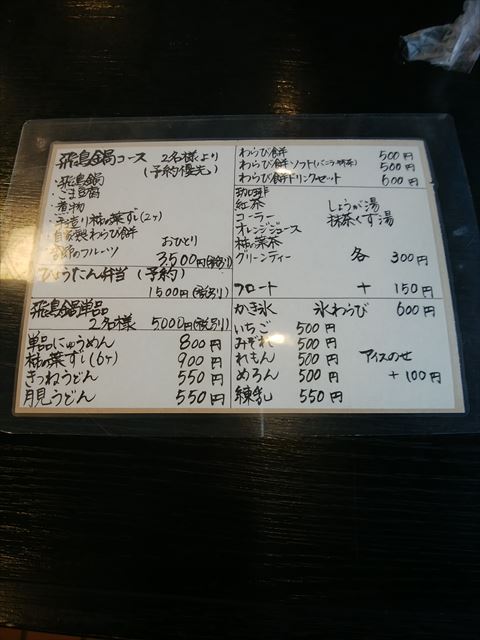 飛鳥鍋コース 2名様より
(予約優先)
・飛鳥鍋
・ごま豆腐
・煮物
・手造り柿の葉ずし(2ヶ)
・自家製わらび餅
・季節のフルーツ
おひとり
3,500円(税別)
ひょうたん弁当(予約)
1500円(税別)
飛鳥鍋単品
2名様 5000円(税別)
単品にゅうめん 800円
柿の葉ずし(6ヶ) 900円
きつねうどん 550円
月見うどん 550円
わらび餅 500円
わらび餅ソフト(バニラ・抹茶) 500円
わらび餅ドリンクセット 600円
珈琲
紅茶 しょうが湯
コーラー 抹茶くず湯
オレンジジュース
柿の葉茶
グリーンティー 各 300円
フロート +150円
かき氷 氷わらび 600円
いちご 500円
みぞれ 500円
れもん 500円 アイスのせ
めろん 500円 +100円
練乳 550円